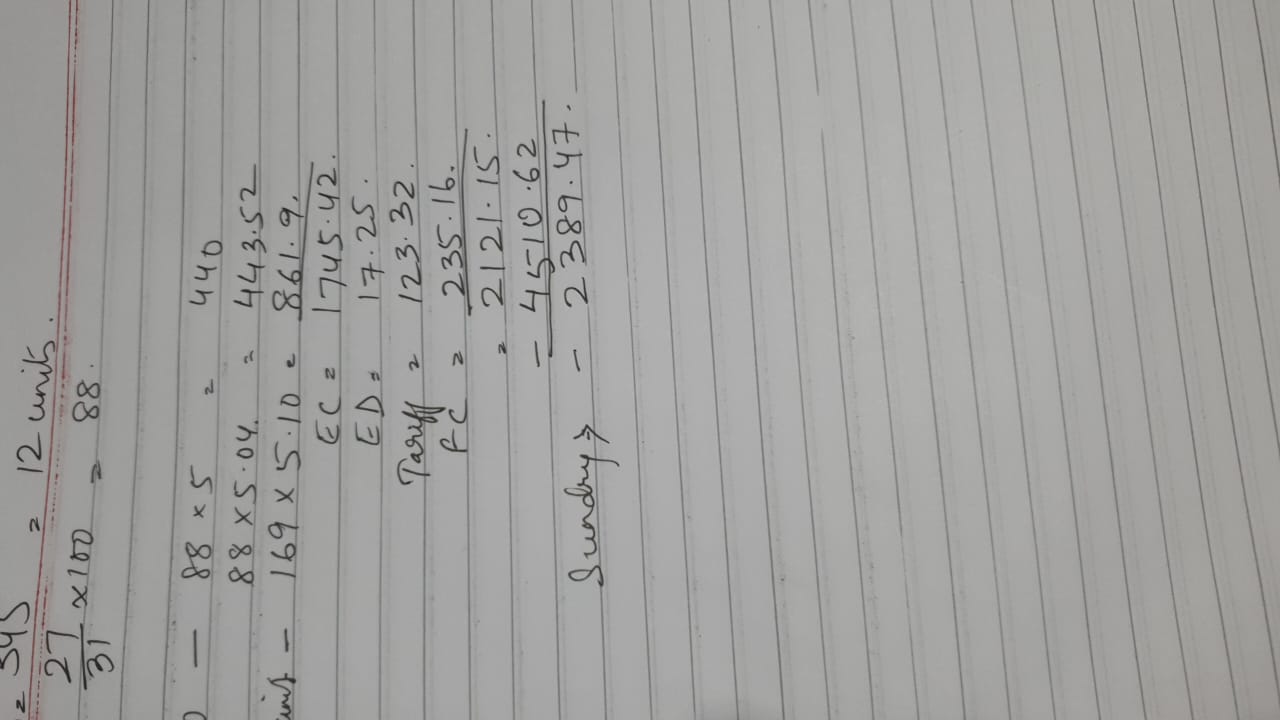 = 345 = 12 units.
27/31 × 100 = 88.
— 88 × 5 = 440
88 × 5.04. = 443.52
— 169 × 5.10 = 861.9.
EC = 1745.42.
ED = 17.25.
Tariff = 123.32.
FC = 235.16.
= 2121.15.
— 4510.62
Sundry → — 2389.47.